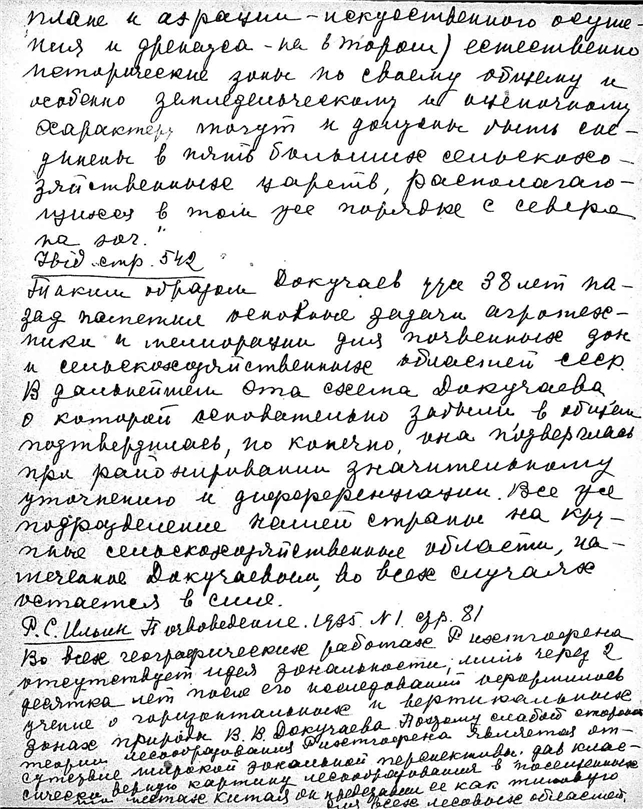 плане и аэрации – искуственного осуше-
ния и дренажа – на втором) естественно
исторические зоны по своему общему и
особенно земледельческому и оценочному
характеру могут и должны быть сое-
динены в пять больших сельскохо-
зяйственных царств, располагаю-
щихся в том же порядке с севера
на юг."
Ibid стр. 542
Таким образом Докучаев уже 38 лет на-
зад наметил основные задачи агротех-
ники и мелиорации для почвенных зон
и сельскохозяйственных областей ссср.
В дальнейшем эта схема Докучаева
о которой основательно забыли в общем
подтвердилась, но конечно, она подверглась
при районировании значительному
уточнению и диференциации. Все же
подразделение нашей страны на кру-
пные сельскохозяйственные области, на-
меченное Докучаевым, во всех случаях
остается в силе.
Р.С. Ильин Почвоведение. 1935. N1. стр. 81
Во всех географических работах Рихтгофена
отсутствует идея зональности; лишь через 2
десятка лет после его исследований оформилось
учение о горизонтальных и вертикальных
зонах природы В. В. Докучаева. Поэтому слабой стороной
теории лессообразования Рихтгофена является от-
сутствие широкой зональной перспективы. дав клас-
сически верную картину лессообразования в посещенных
им местах Китая он представил ее как типовую
для всех лессовых областей